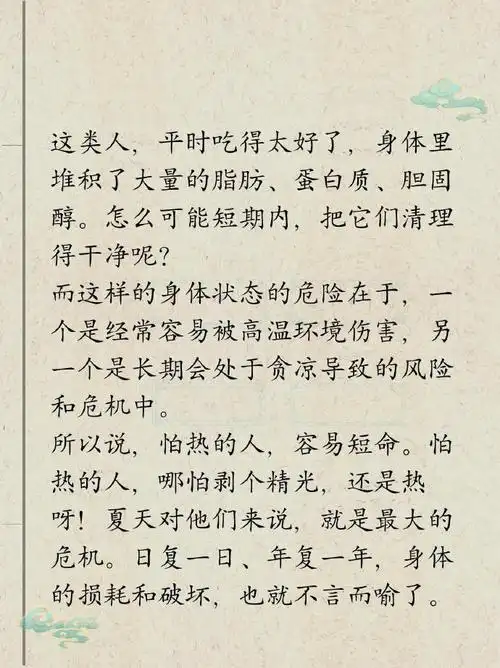 这类人，平时吃得太好了，身体里
堆积了大量的脂肪、蛋白质、胆固
醇。怎么可能短期内，把它们清理
得干净呢？
而这样的身体状态的危险在于，一
个是经常容易被高温环境伤害，另
一个是长期会处于贪凉导致的风险
和危机中。
所以说，怕热的人，容易短命。怕
热的人，哪怕剥个精光，还是热
呀！夏天对他们来说，就是最大的
危机。日复一日、年复一年，身体
的损耗和破坏，也就不言而喻了。